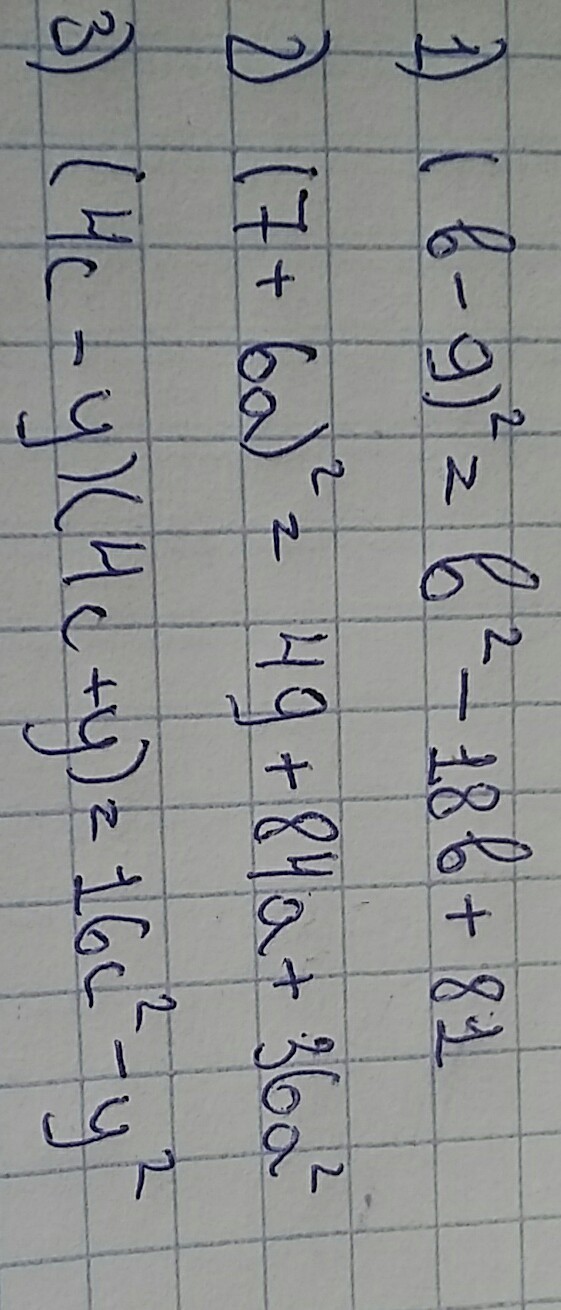 1) (b - 9)² = b² - 18b + 81
2) (7 + 6a)² = 49 + 84a + 36a²
3) (4c - y)(4c + y) = 16c² - y²